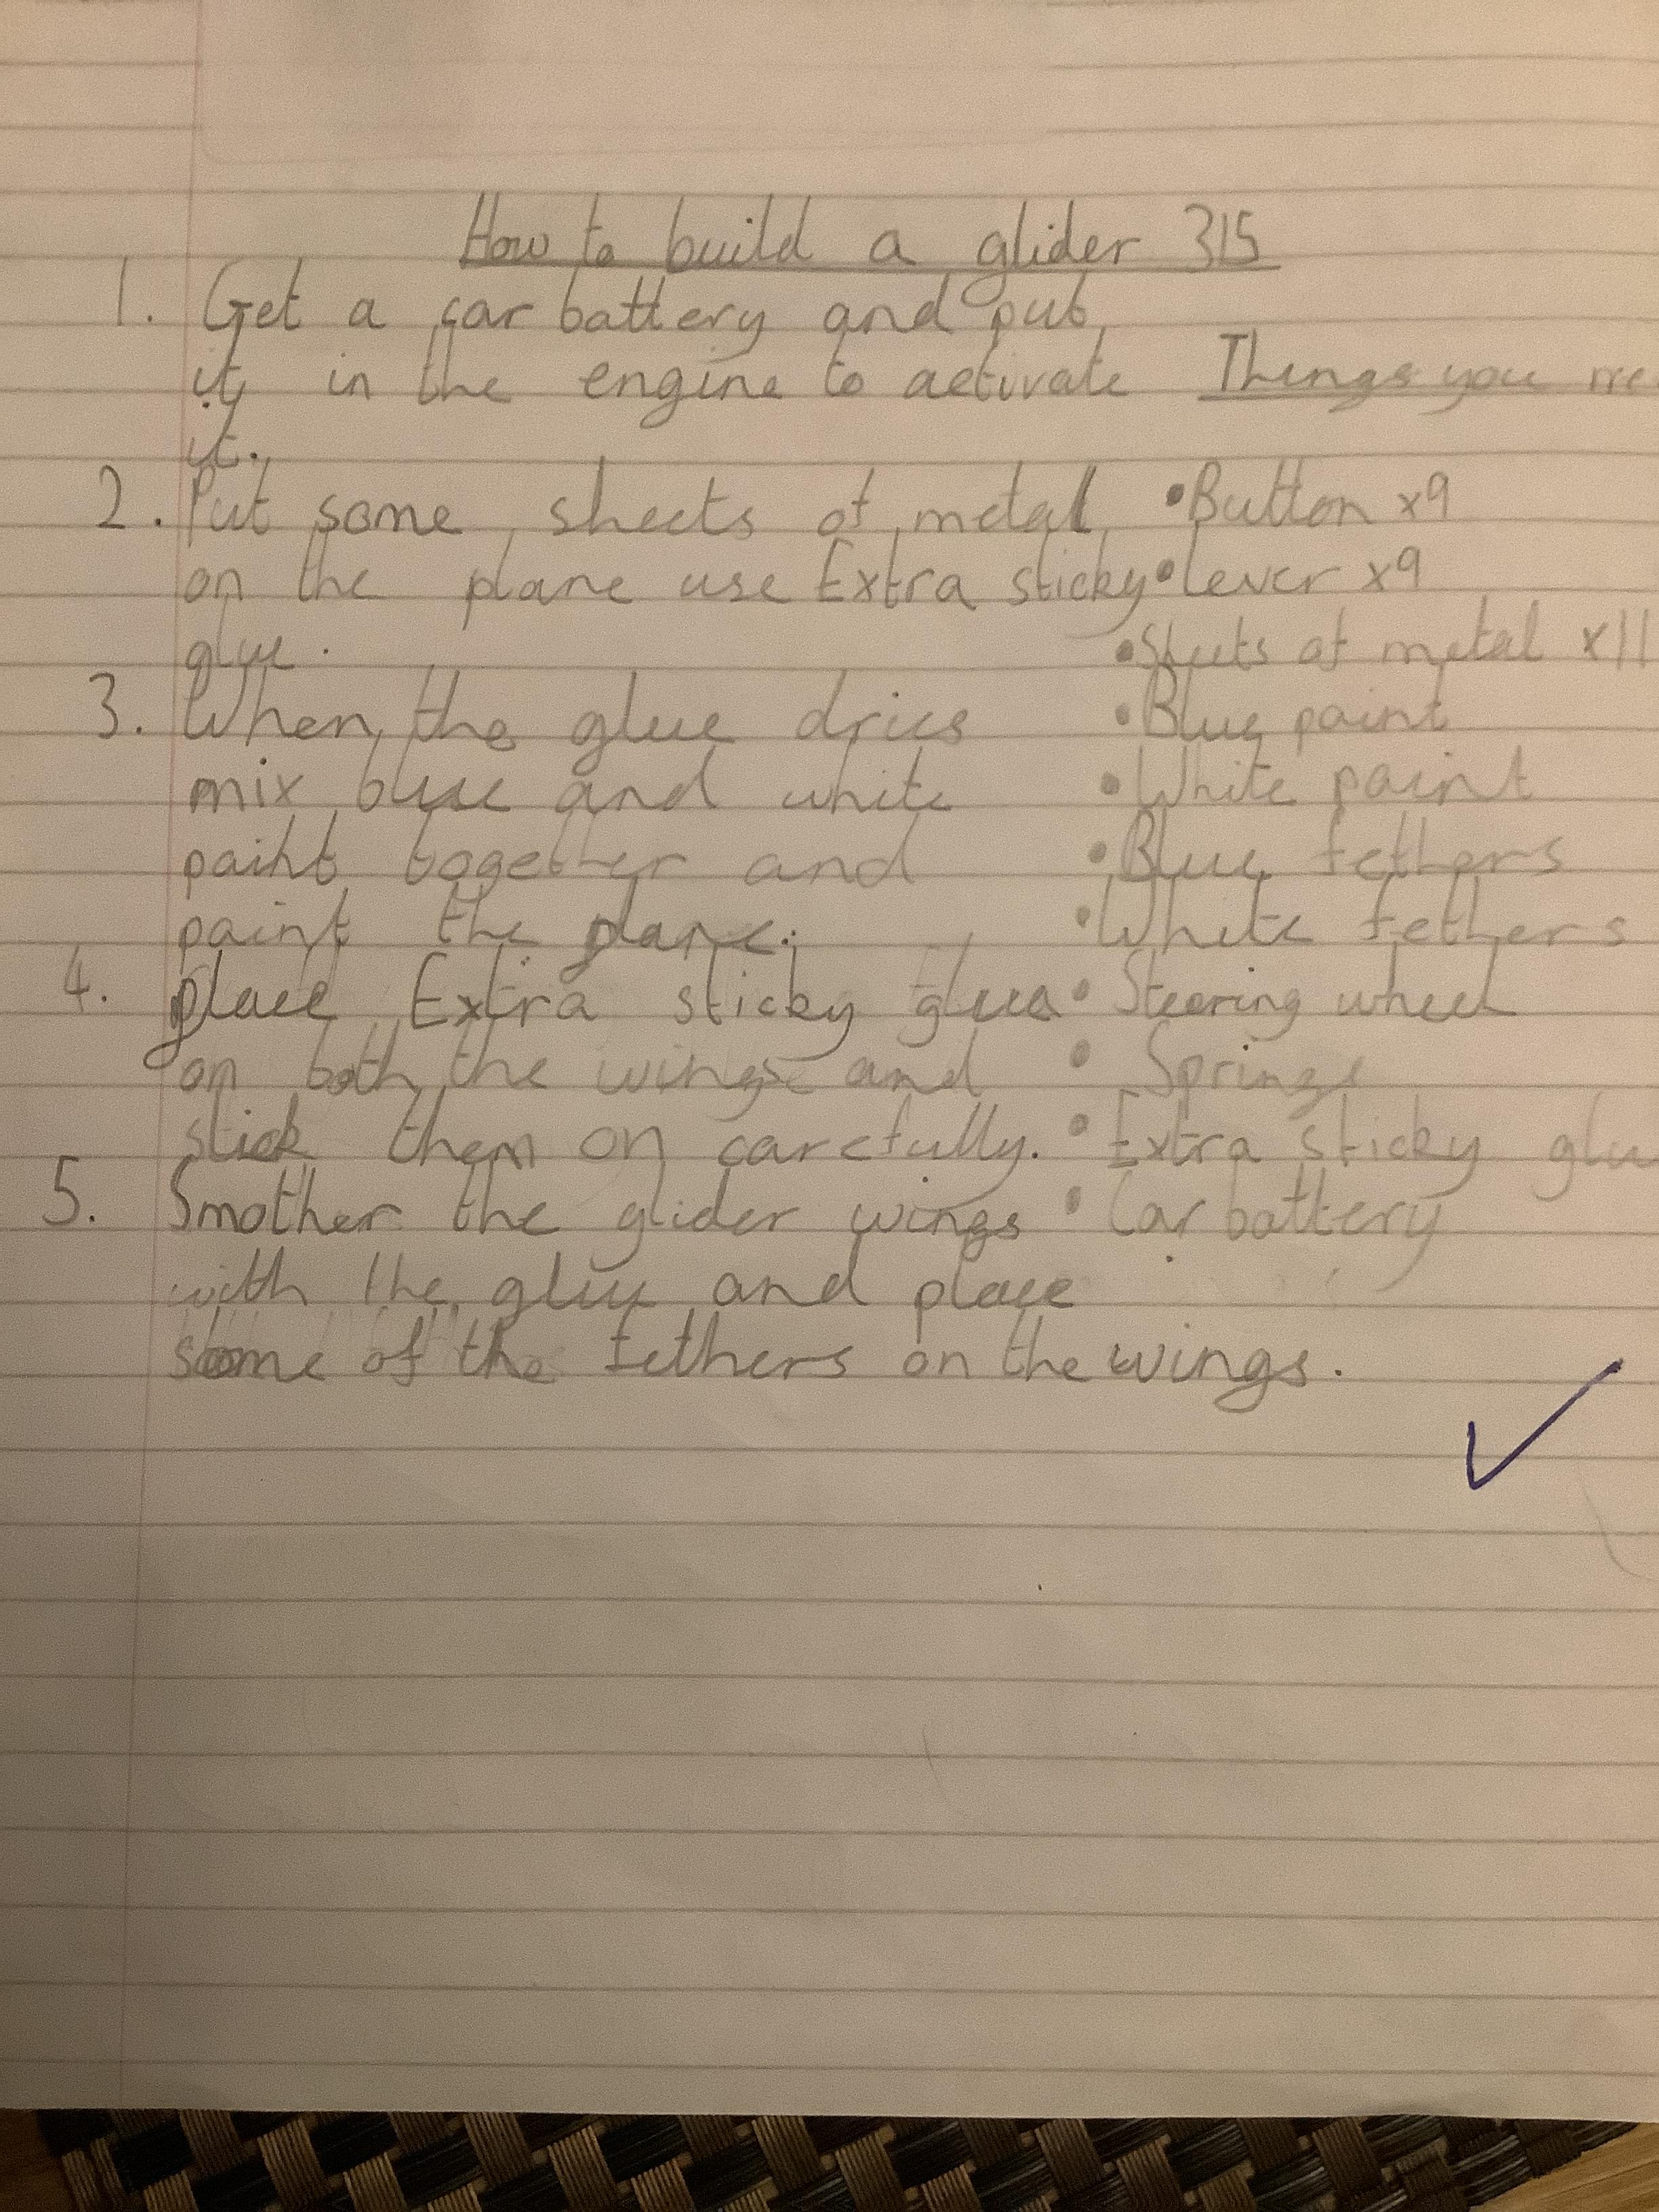 How to build a glider 315
1. Get a car battery and put
it in the engine to activate
it.
2. Put some sheets of metal
on the plane use Extra sticky
glue.
3. When the glue dries
mix blue and white
paint together and
paint the plane.
4. place Extra sticky glue
on both the wings and
stick them on carefully.
5. Smother the glider wings
with the glue and place
some of the fethers on the wings.
Things you nee
• Button x9
• lever x9
• Sheets of metal x11
• Blue paint
• White paint
• Blue fethers
• White fethers
• Steering wheel
• Springs
• Extra sticky glu
• Car battery